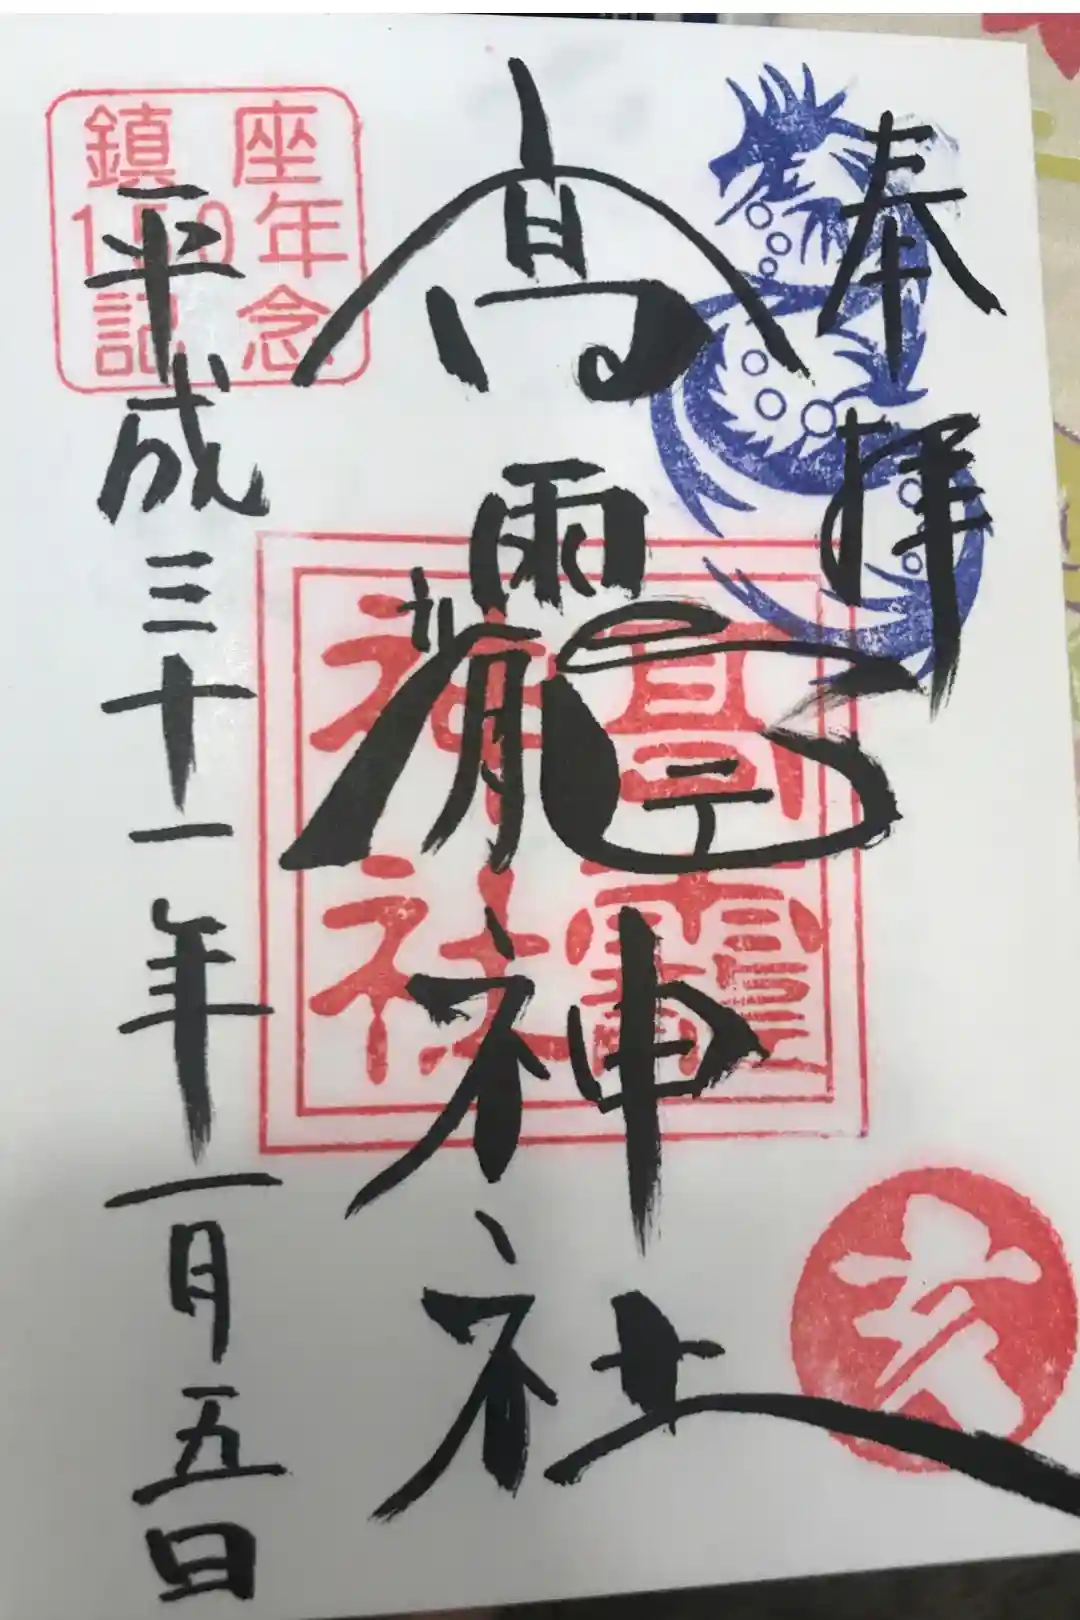 奉拝
高靇神社
平成三十一年一月五日
鎮座
150年
記念
高靇
神社
亥